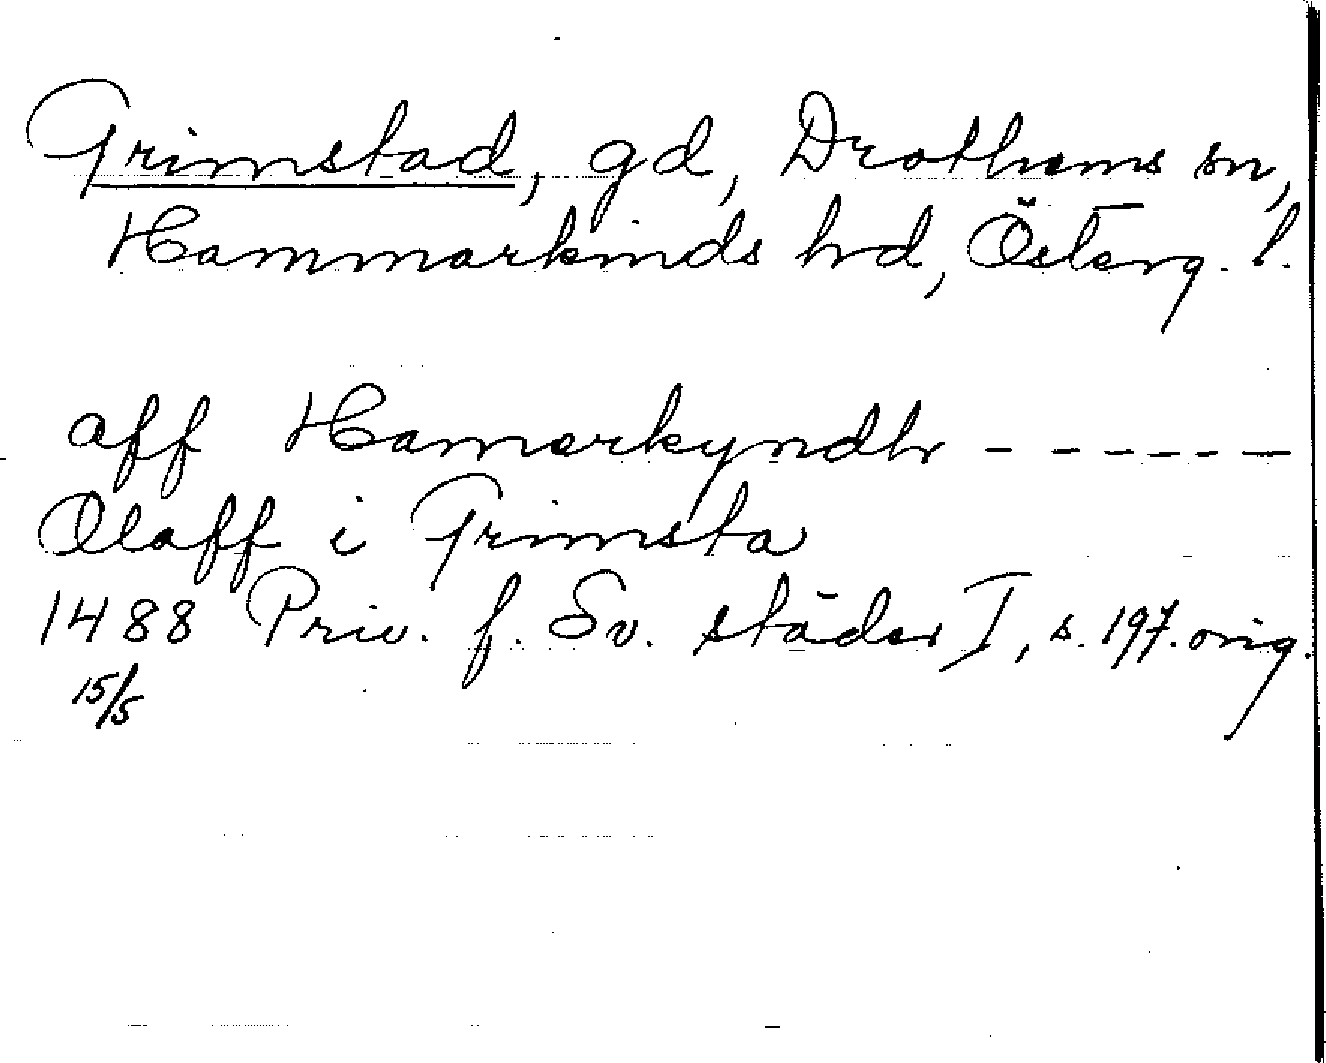 Grimstad, gd, Drothems sn,
Hammarkinds hd, Österg. l.
aff Hamarkyndh - - - - - -
Olaff i Grimsta
1488 Priv. f. Sv. städer I, s. 197. orig.
15/5